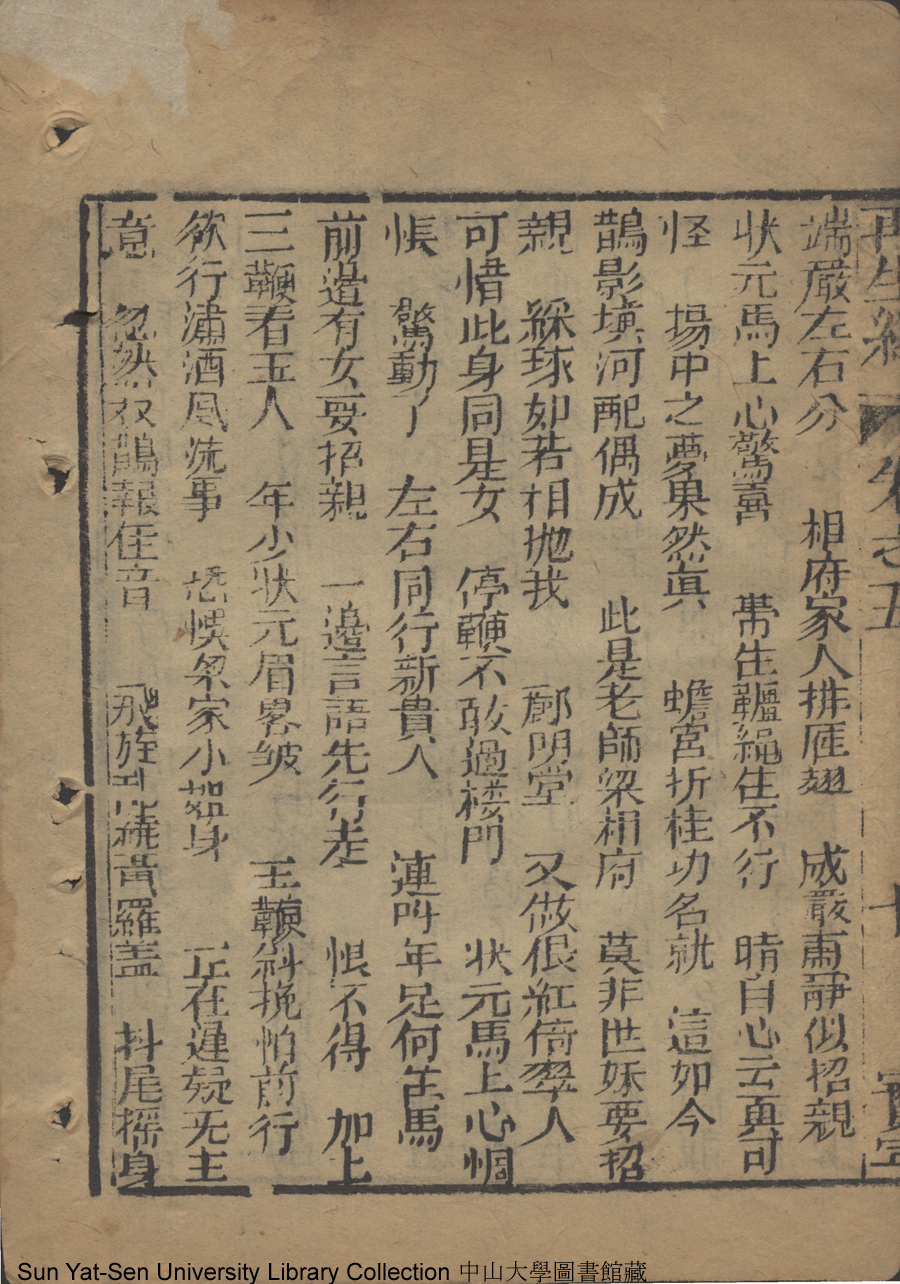 再生縁 卷之五 七
端嚴左右分 相府家人排雁翅 成嚴肅靜似招親
狀元馬上心驚 帶生韁繩生不行 暗自心云真可
怪 場中之夢果然真 蟾宮折桂功名就 這如今
鵲影填河配偶成 此是老師梁相府 莫非世妹要招
親 綵球如若相抛我 酈明堂 又做偎紅倚翠人
可惜此身同是女 停鞭不敢過樓門 狀元馬上心惆
悵 驚動了 左右同行新貴人 連叫年兄何 馬
前邉有女要招親 一邉言語先行走 恨不得 加上
三鞭看玉人 年少狀元眉畧皱 玉鞭斜挽怕前行
欲行瀟洒風流事 恐悞梁家小姐身 正在遲疑无主
意 忽然灵鵲報佳音 飛旋 繞黃羅盖 抖尾摇身
Sun Yat-Sen University Library Collection 中山大學圖書館藏